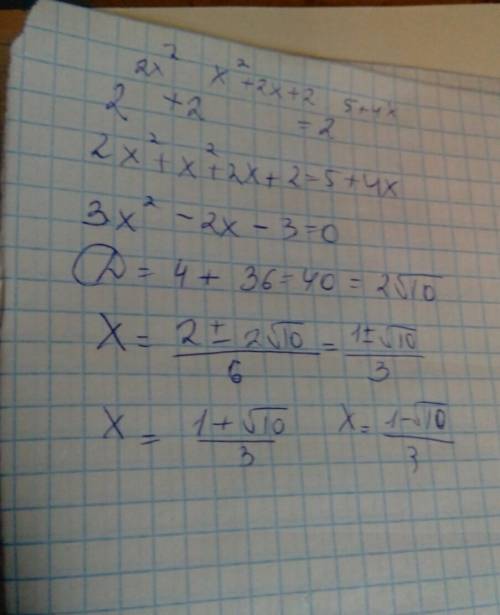 2^{2x^2} + 2^{x^2+2x+2} = 2^{5+4x}
2x^2 + x^2 + 2x + 2 = 5 + 4x
3x^2 - 2x - 3 = 0
D = 4 + 36 = 40 = 2√10
X = (2 ± 2√10)/6 = (1 ± √10)/3
X = (1 + √10)/3 X = (1 - √10)/3